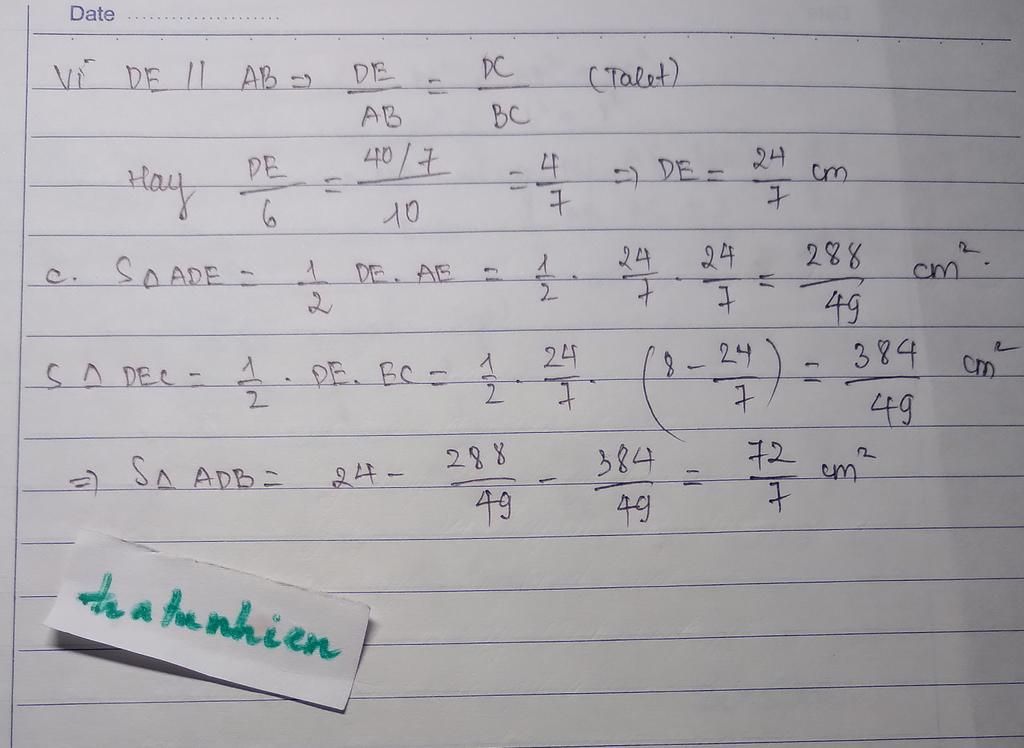 Date
Vì DE // AB => DE/AB = DC/BC (Talet)
Hay DE/6 = 40/7/10 = 4/7 => DE = 24/7 cm
c. SΔADE = 1/2 DE. AE = 1/2 . 24/7 . 24/7 = 288/49 cm².
SΔDEC = 1/2 . DE. EC = 1/2 . 24/7 . (8 - 24/7) = 384/49 cm²
=> SΔADB = 24 - 288/49 - 384/49 = 72/7 cm²
tratunhien